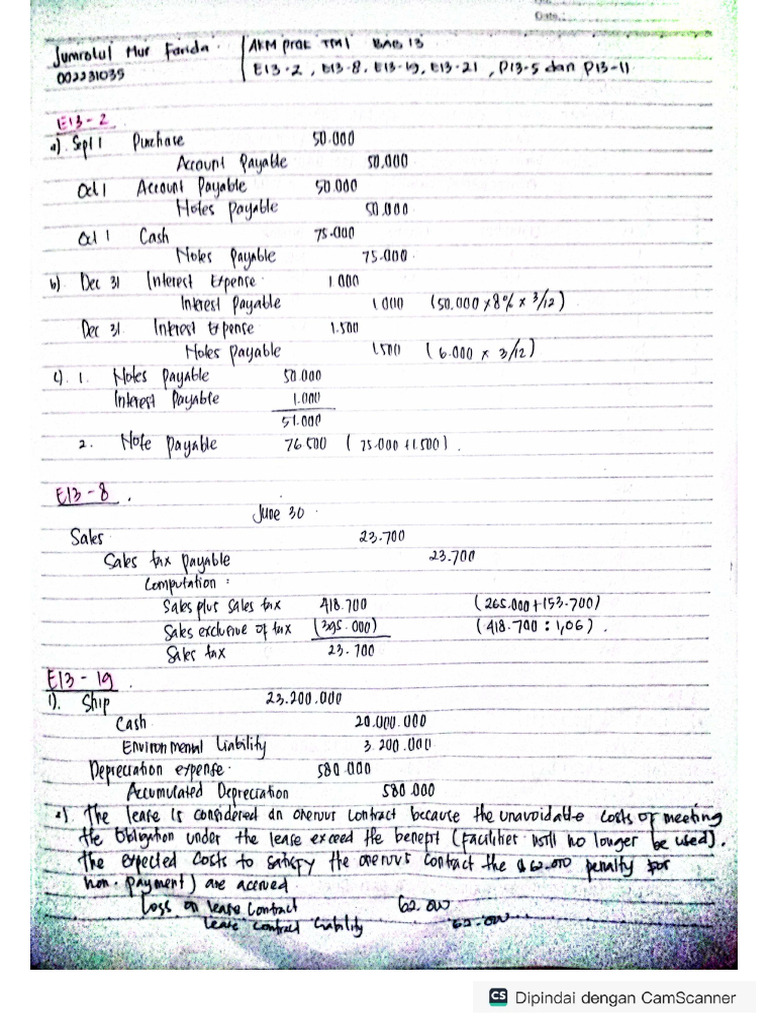 Date:
Jumrotul Nur Farida. AKM prak TM1 BAB 13
002231035 E13-2, E13-8, E13-19, E13-21, P13-5 dan P13-11
E13-2
a). Sept 1 Purchase 50.000
Account Payable 50.000
Oct 1 Account Payable 50.000
Notes Payable 50.000
Oct 1 Cash 75.000
Notes Payable 75.000.
b) Dec 31 Interest Expense 1.000
Interest Payable 1.000 (50.000 x 8% x 3/12)
Dec 31 Interest Expense 1.500
Notes Payable 1.500 (6.000 x 3/12)
c). 1. Notes Payable 50.000
Interest Payable 1.000
51.000
2. Note Payable 76.500 (75.000 + 1.500).
E13-8.
June 30.
Sales 23.700
Sales tax payable 23.700
Computation :
Sales plus sales tax 418.700 (265.000 + 153.700)
Sales exclusive of tax (395.000) (418.700 : 1,06).
Sales tax 23.700
E13-19.
1). Ship 23.200.000
Cash 20.000.000
Environmental Liability 3.200.000
Depreciation expense. 580.000
Accumulated Depreciation 580.000
2) The lease is considered an onerous contract because the unavoidable costs of meeting
the obligation under the lease exceed the benefit (facilities will no longer be used).
The expected costs to satisfy the onerous contract the $62.000 penalty for
non-payment) are accrued.
Loss on lease contract 62.000
Lease contract liability 62.000
CS Dipindai dengan CamScanner